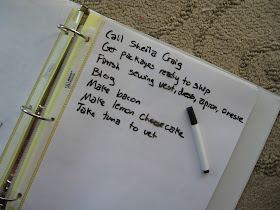 Call Sheila Craig
Get packages ready to ship
Finish sewing vest, dress, apron, onesie
Blog
Make bacon
Make lemon cheesecake
Take tuna to vet